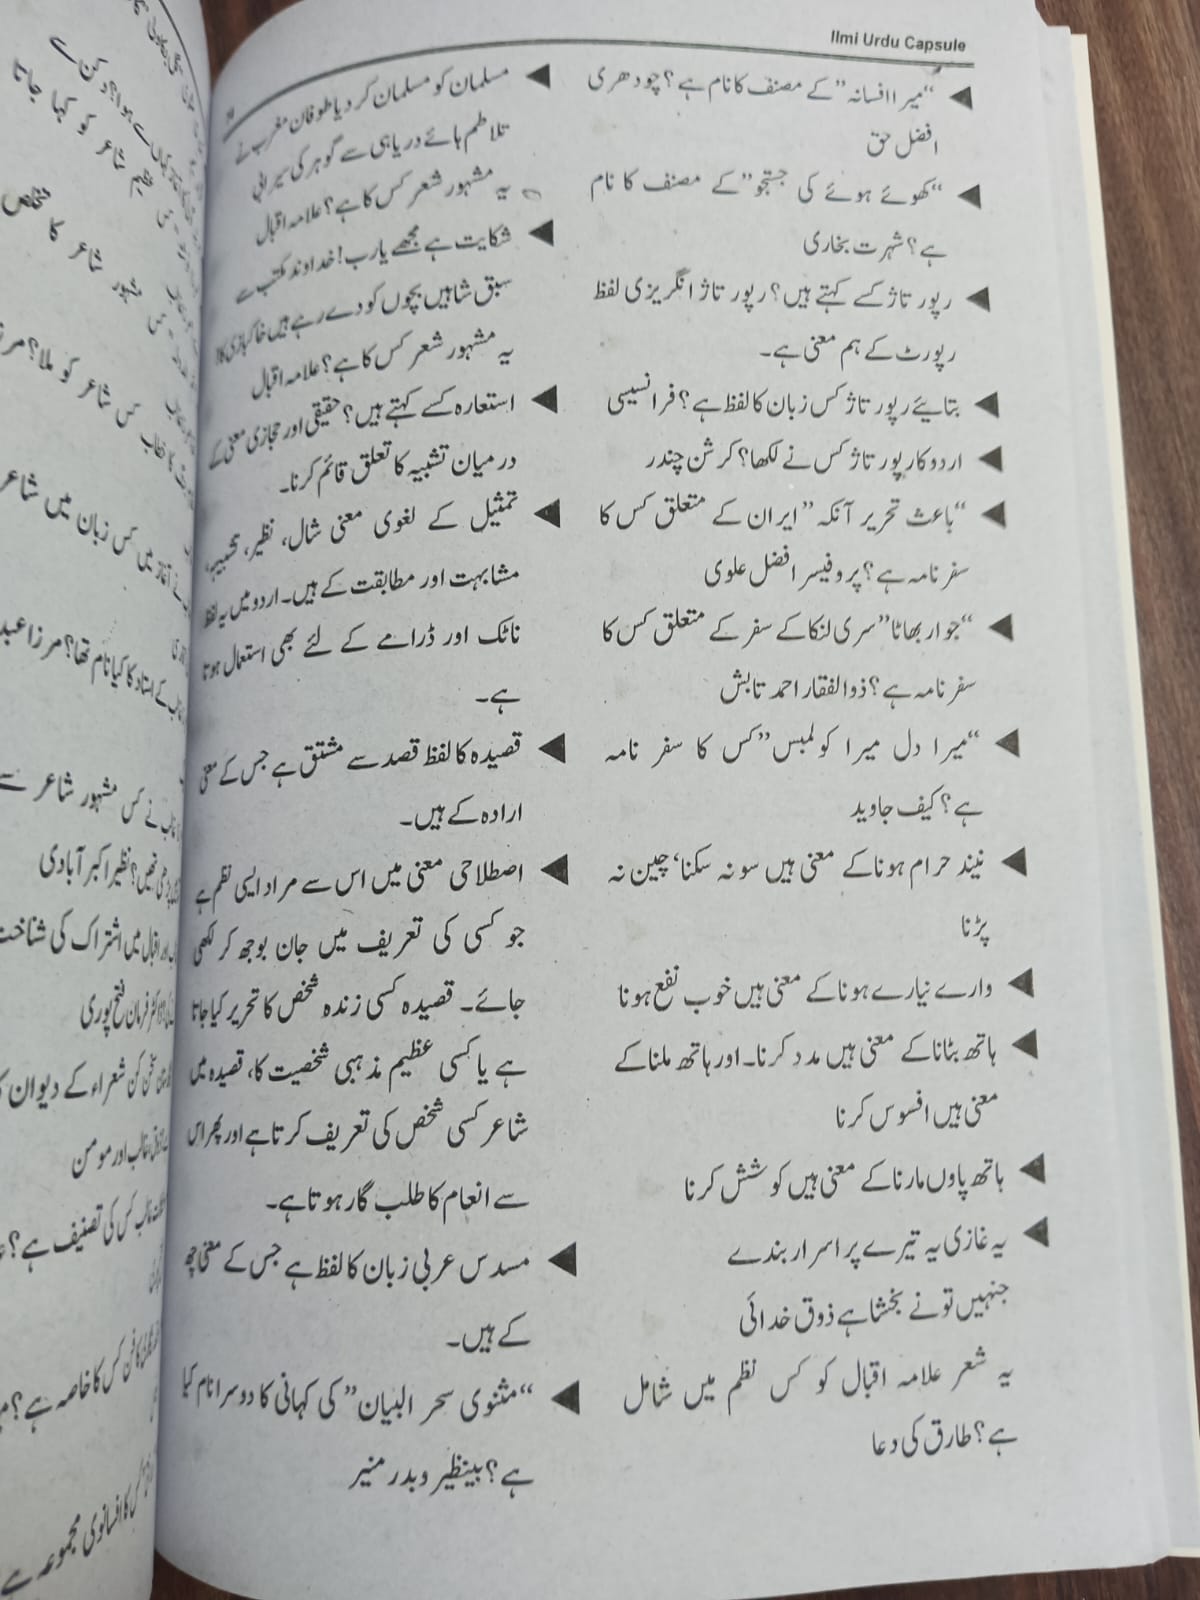 Ilmi Urdu Capsule
"میرا افسانہ" کے مصنف کا نام ہے؟ چودھری
افضل حق
"کھوئے ہوئے کی جستجو" کے مصنف کا نام
ہے؟ شہرت بخاری
رپورتاژ کسے کہتے ہیں؟ رپورتاژ انگریزی لفظ
رپورٹ کے ہم معنی ہے۔
بتایئے رپورتاژ کس زبان کا لفظ ہے؟ فرانسیسی
اردو کا رپورتاژ کس نے لکھا؟ کرشن چندر
"باعث تحریر آنکہ" ایران کے متعلق کس کا
سفر نامہ ہے؟ پروفیسر افضل علوی
"جوار بھاٹا" سری لنکا کے سفر کے متعلق کس کا
سفر نامہ ہے؟ ذوالفقار احمد تابش
"میرا دل میرا کولمبس" کس کا سفر نامہ
ہے؟ کیف جاوید
نیند حرام ہونا کے معنی ہیں سو نہ سکنا، چین نہ
پڑنا
وارے نیارے ہونا کے معنی ہیں خوب نفع ہونا
ہاتھ بٹانا کے معنی ہیں مدد کرنا۔ اور ہاتھ ملنا کے
معنی ہیں افسوس کرنا
ہاتھ پاوں مارنا کے معنی ہیں کوشش کرنا
یہ غازی یہ تیرے پر اسرار بندے
جنہیں تو نے بخشا ہے ذوق خدائی
یہ شعر علامہ اقبال کو کس نظم میں شامل
ہے؟ طارق کی دعا
مسلمان کو مسلمان کر دیا طوفان مغرب نے
تلاطم ہائے دریا ہی سے گوہر کی سیرابی
یہ مشہور شعر کس کا ہے؟ علامہ اقبال
شکایت ہے مجھے یارب! خداوند مکتب سے
سبق شاہیں بچوں کو دے رہے ہیں خاکبازی کا!
یہ مشہور شعر کس کا ہے؟ علامہ اقبال
استعارہ کسے کہتے ہیں؟ حقیقی اور مجازی معنی کے
درمیان تشبیہ کا تعلق قائم کرنا۔
تمثیل کے لغوی معنی شال، نظیر، تشبیہہ،
مشابہت اور مطابقت کے ہیں۔ اردو میں یہ لفظ
ناٹک اور ڈرامے کے لئے بھی استعمال ہوتا
ہے۔
قصیدہ کا لفظ قصد سے مشتق ہے جس کے معنی
ارادہ کے ہیں۔
اصطلاحی معنی میں اس سے مراد ایسی نظم ہے
جو کسی کی تعریف میں جان بوجھ کر لکھی
جائے۔ قصیدہ کسی زندہ شخص کا تحریر کیا جاتا
ہے یا کسی عظیم مذہبی شخصیت کا، قصیدہ میں
شاعر کسی شخص کی تعریف کرتا ہے اور پھر اس
سے انعام کا طلب گار ہوتا ہے۔
مسدس عربی زبان کا لفظ ہے جس کے معنی چھ
کے ہیں۔
"مثنوی سحر البیان" کی کہانی کا دوسرا نام کیا
ہے؟ بینظیر و بدر منیر
شاعر کو کہا جاتا
مشہور شاعر کا تخلص
خطاب کس شاعر کو ملا؟
آغاز میں کس زبان میں شاعر
کے استاد کا کیا نام تھا؟ مرزا عبد
نے کس مشہور شاعر سے
نظیر اکبر آبادی
اور اقبال میں اشتراک کی شناخت
ڈاکٹر فرمان فتح پوری
کن شعراء کے دیوان
غالب اور مومن
کس کی تصنیف ہے؟
کا فن کس کا خاصہ ہے؟
کس کا افسانوی مجموعہ ہے